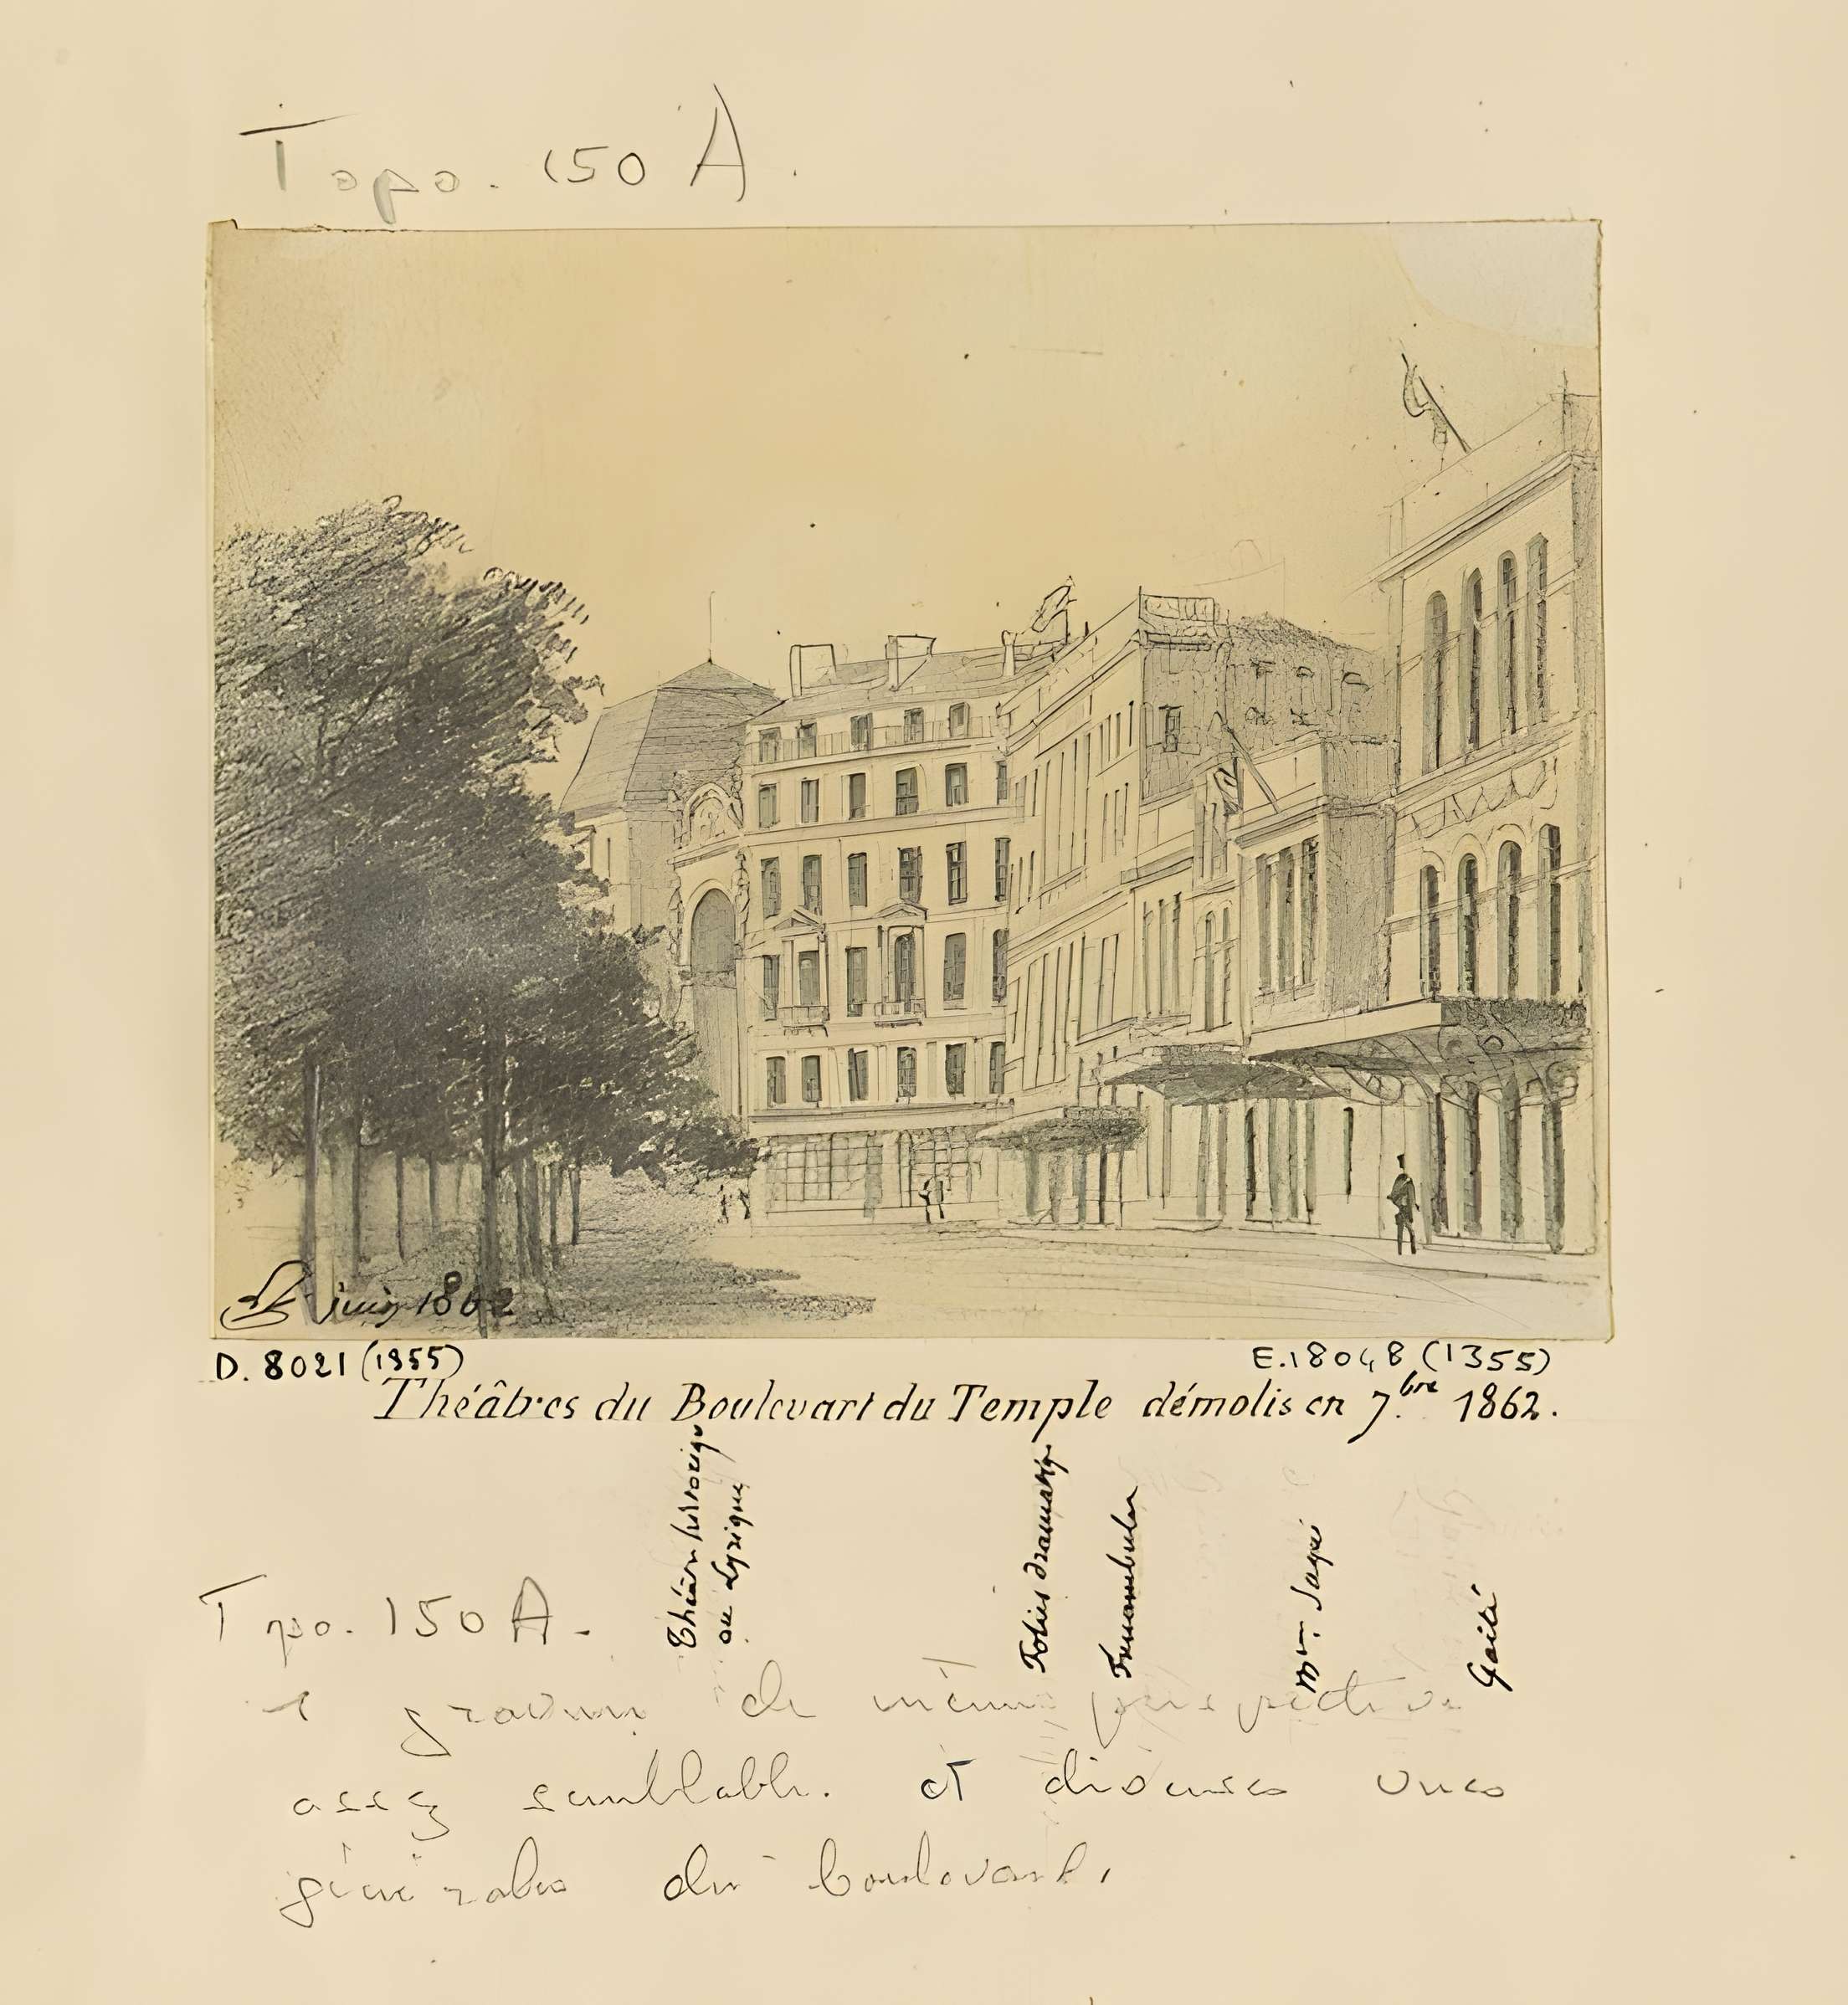 Topo. 150 A.
juin 1862
D. 8021 (1355)
E.18048 (1355)
Théâtres du Boulevart du Temple démolis en 7.bre 1862.
Théâtre historique
ou Lyrique
Folies dramatiq
Funambules
Mme Saqui
Gaité
Topo. 150 A.
1 gravure de même perspective
assez semblable. et diverses vues
générales du boulevard.